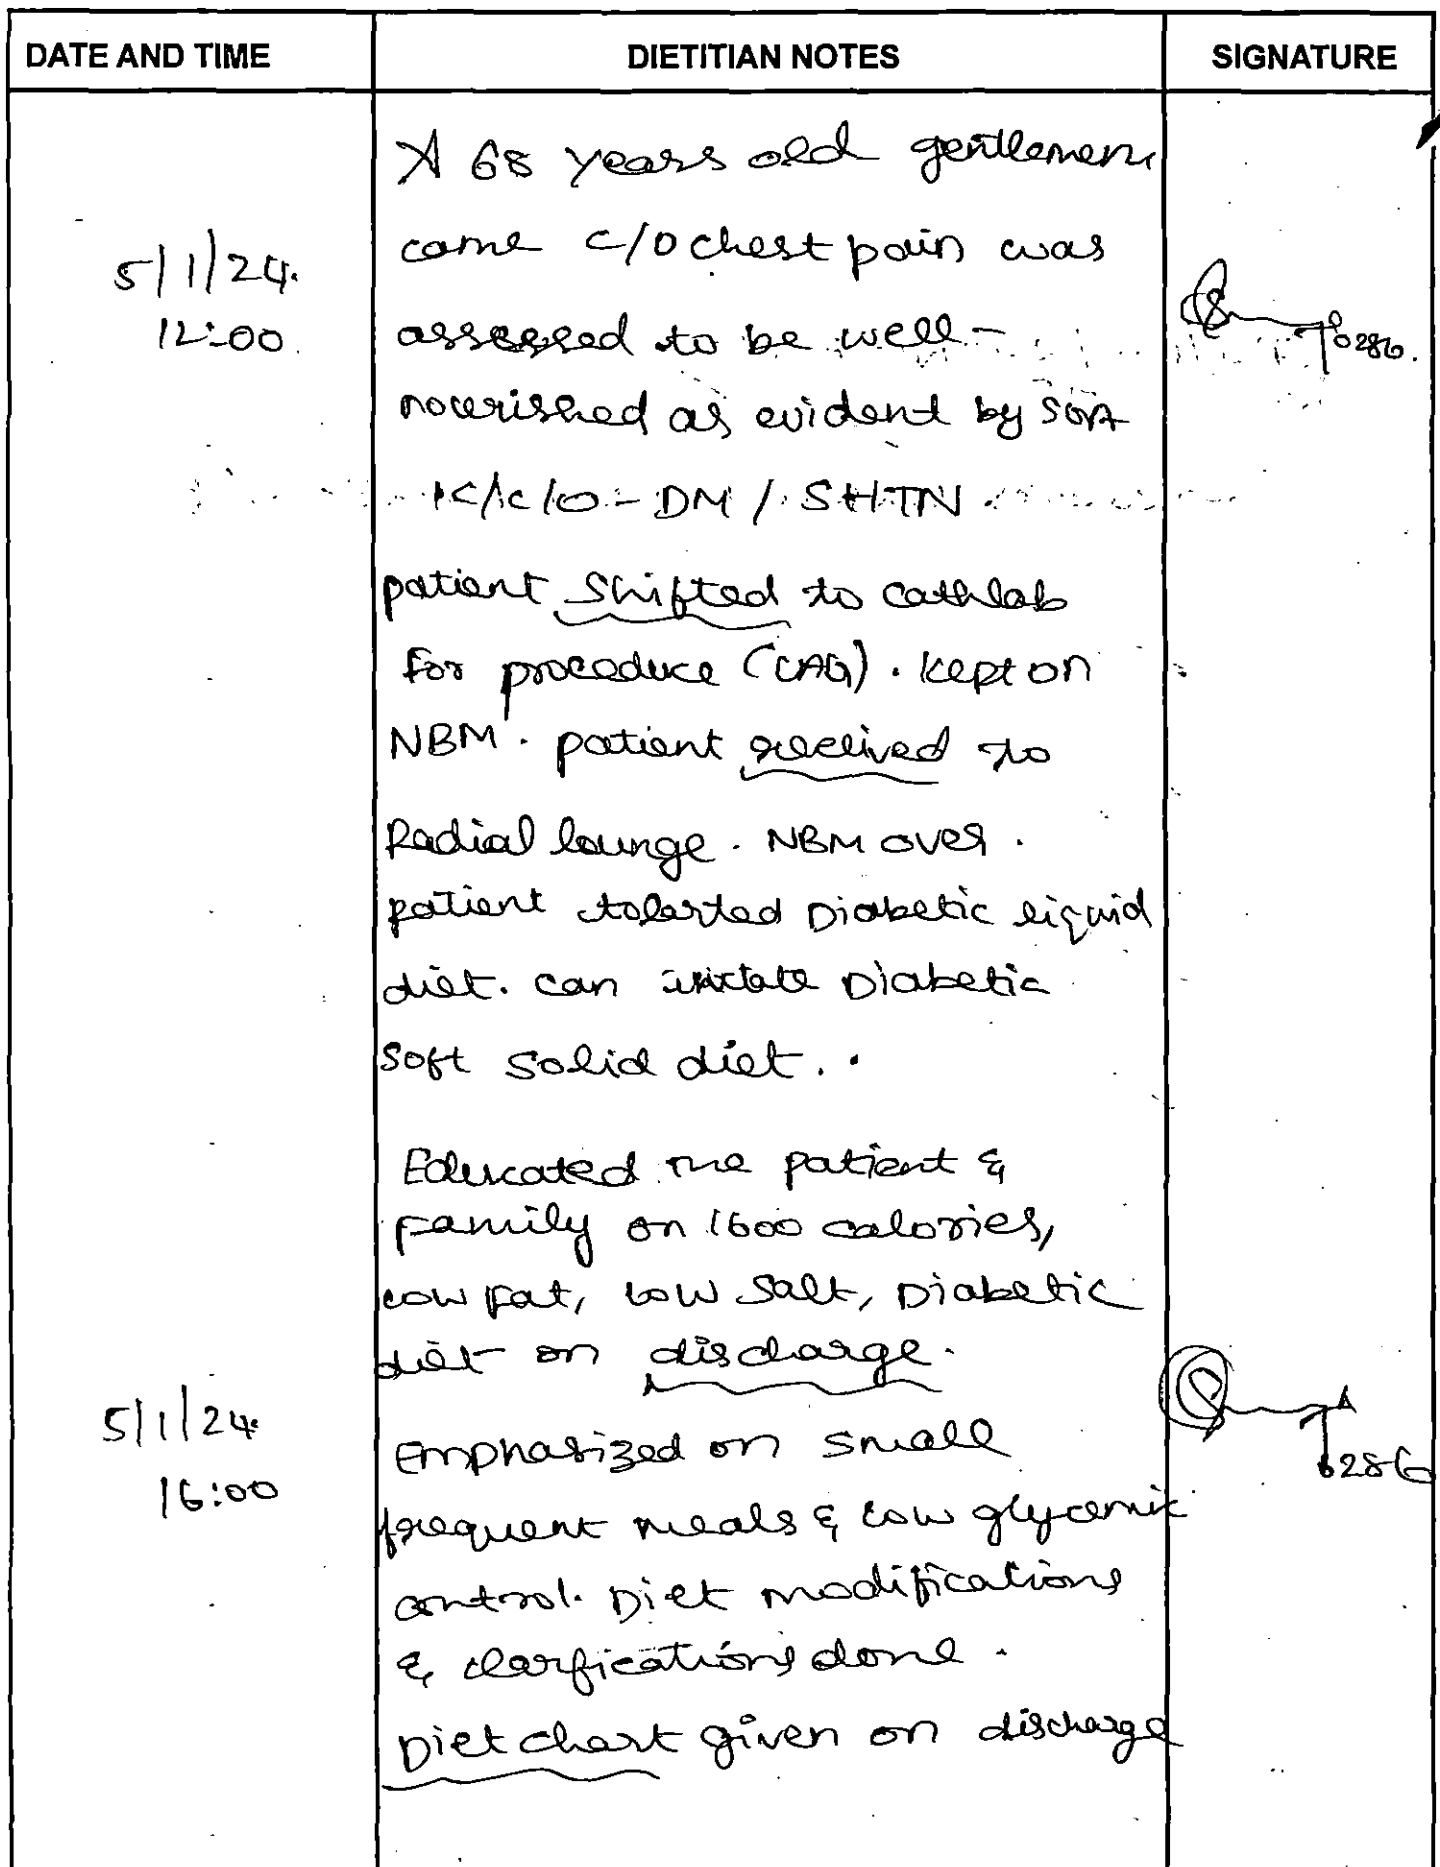 DATE AND TIME DIETITIAN NOTES SIGNATURE
A 68 years old gentlemen
came c/o chest pain was
5/1/24.
12:00 assessed to be well-
nourished as evident by SGA
K/c/o - DM / SHTN
patient shifted to cathlab
for proceduce (CAG). kept on
NBM. patient received to
Radial lounge. NBM over.
patient tolerted Diabetic liquid
diet. can initate Diabetic
soft solid diet.
Educated the patient &
family on 1600 calories,
low fat, low salt, Diabetic
diet on discharge.
5/1/24.
16:00
Emphasized on small
6286
frequent meals & low glycemic
control. Diet modifications
& clarfications done.
Diet chart given on discharge